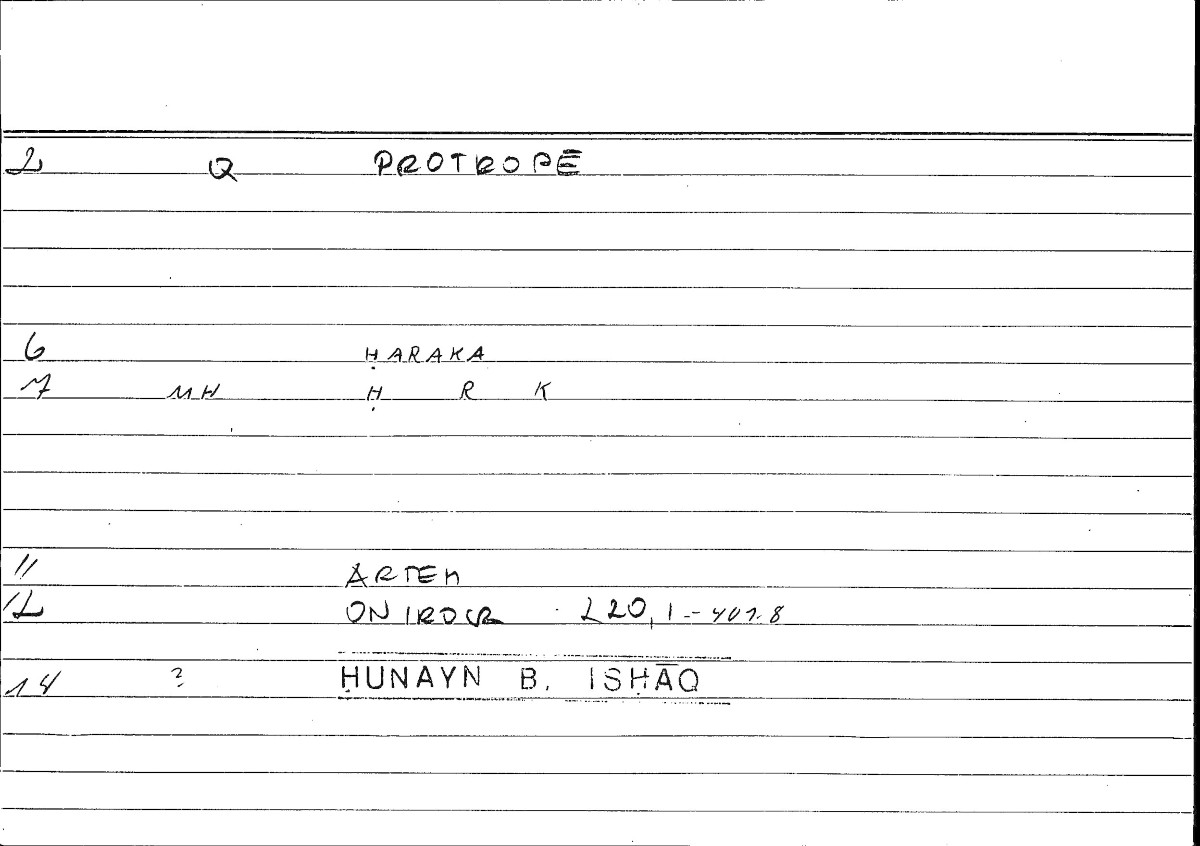 2 Q PROTROPĒ
6 ḤARAKA
7 MH Ḥ R K
11 ARTEM
12 ONIROCR 220,1 - 401.8
14 ? ḤUNAYN B. ISḤĀQ